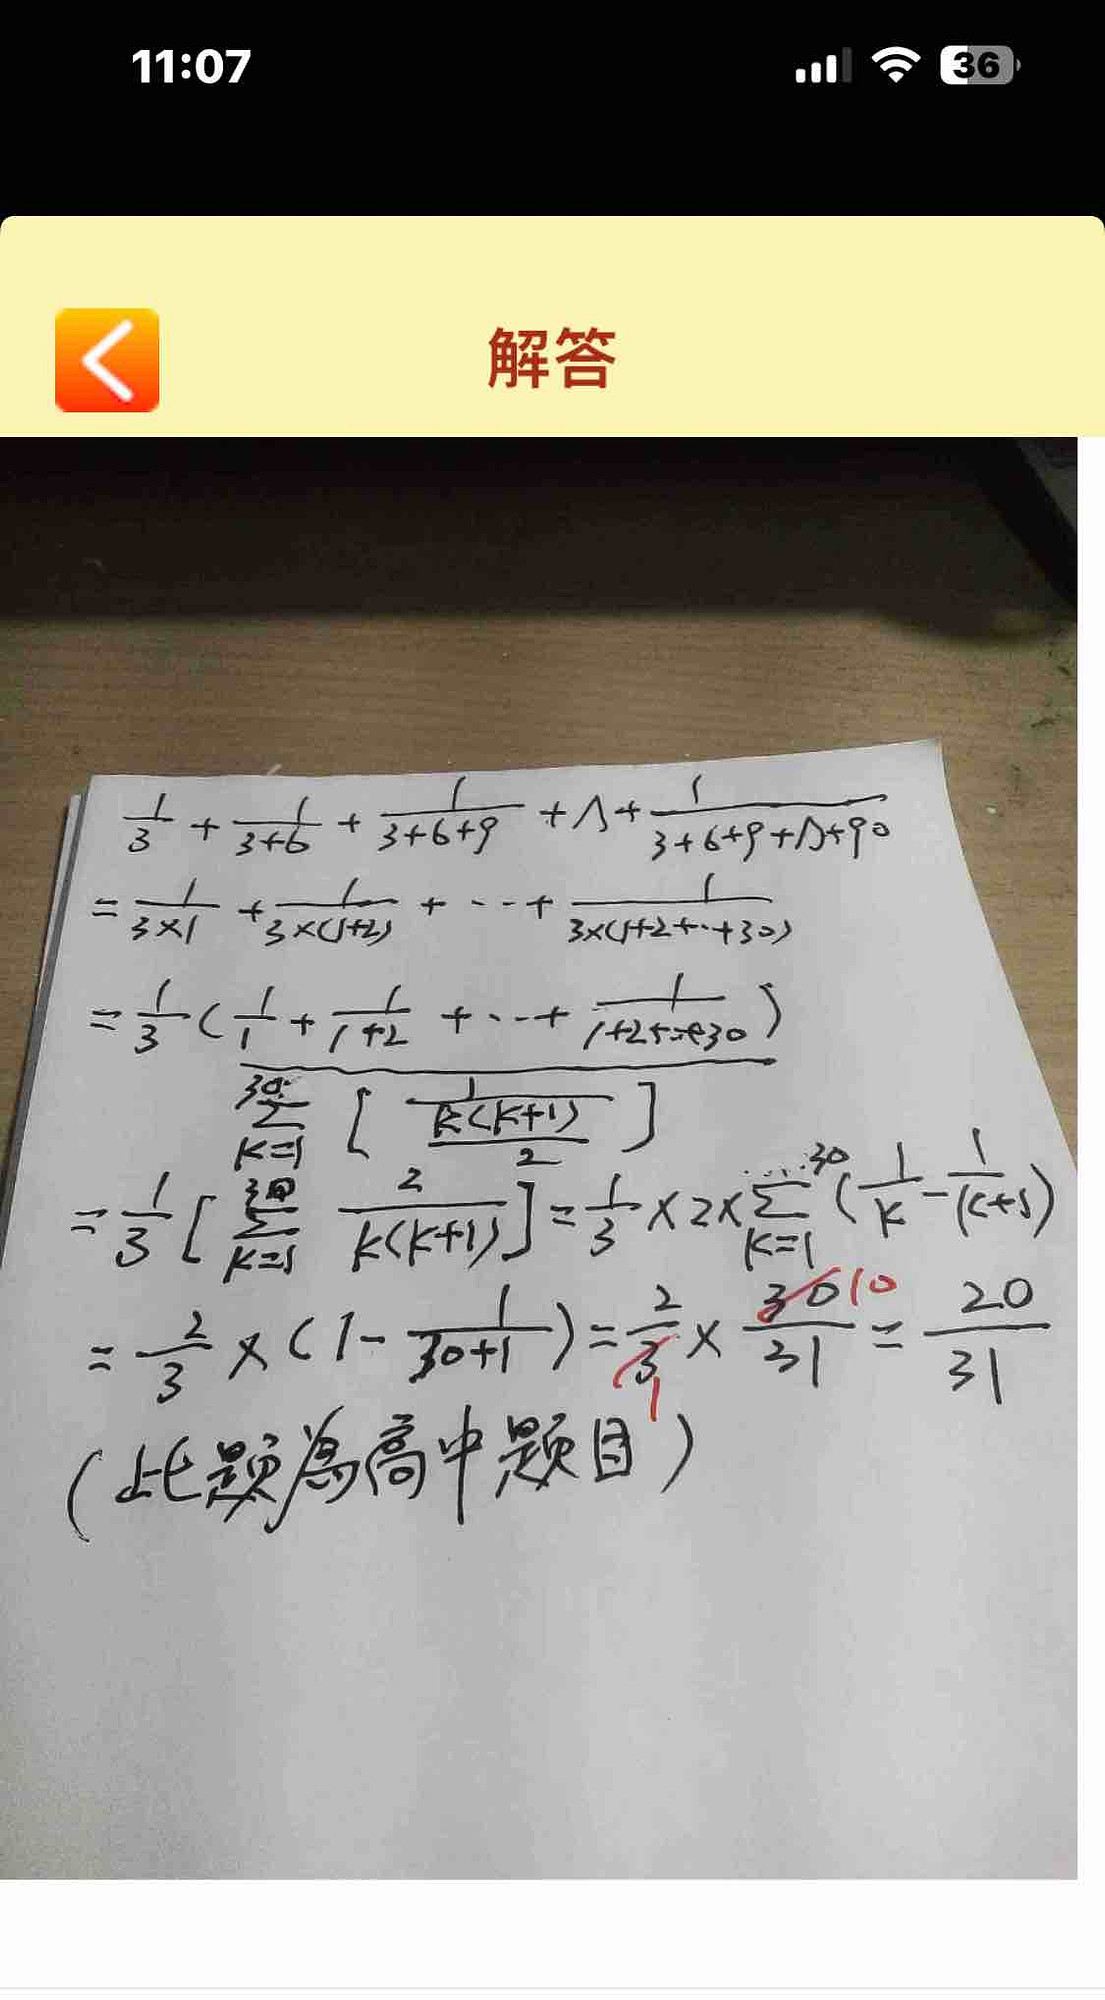 11:07
36
解答
1/3 + 1/(3+6) + 1/(3+6+9) + Λ + 1/(3+6+9+Λ+90)
= 1/(3×1) + 1/(3×(1+2)) + ... + 1/(3×(1+2+..+30))
= 1/3 (1/1 + 1/(1+2) + ... + 1/(1+2+...+30))
30 Σ K=1 [ 1/(k(k+1)/2) ]
= 1/3 [ 30 Σ K=1 2/(k(k+1)) ] = 1/3 × 2 × 30 Σ K=1 (1/k - 1/(k+1))
= 2/3 × (1 - 1/(30+1)) = 2/3 1 × 30 10/31 = 20/31
(此题為高中题目)